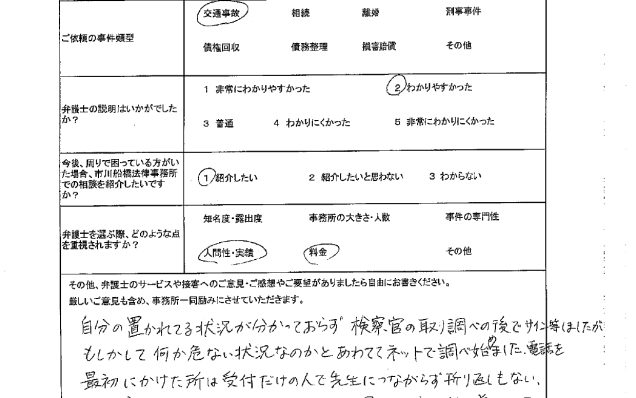 ご依頼の事件類型
交通事故 相続 離婚 刑事事件
債権回収 債務整理 損害賠償 その他
弁護士の説明はいかがでしたか?
1 非常にわかりやすかった 2 わかりやすかった
3 普通 4 わかりにくかった 5 非常にわかりにくかった
今後、周りで困っている方がいた場合、市川船橋法律事務所での相談を紹介したいですか?
1 紹介したい 2 紹介したいと思わない 3 わからない
弁護士を選ぶ際、どのような点を重視されますか?
知名度・露出度 事務所の大きさ・人数 事件の専門性
人間性・実績 料金 その他
その他、弁護士のサービスや接客へのご意見・ご感想やご要望がありましたら自由にお書きください。
厳しいご意見も含め、事務所一同励みにさせていただきます。
自分の置かれてる状況が分かっておらず 検察官の取り調べの後でサイン等しましたが
もしかして何か危ない状況なのかとあわててネットで調べ始めました。電話を
最初にかけた所は受付だけの人で先生につながらず折り返しもない、